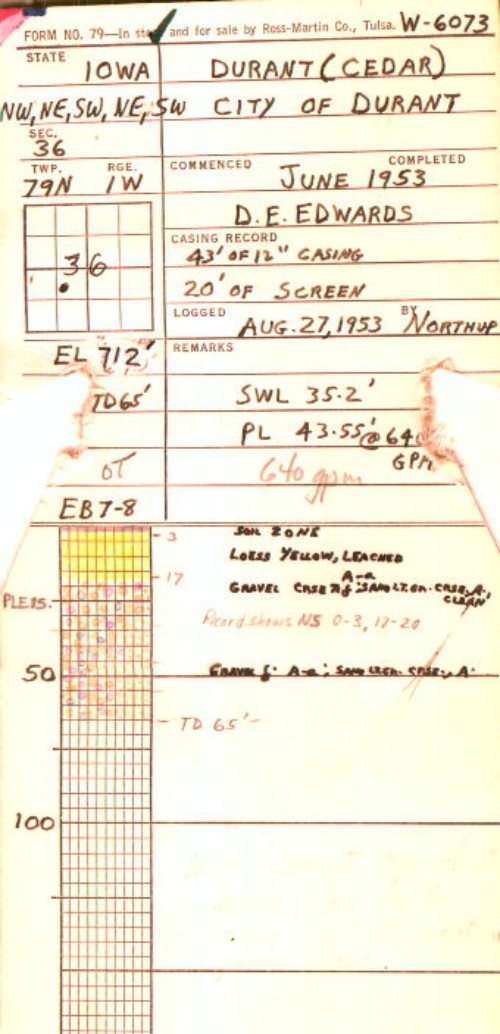 FORM NO. 79—In stock and for sale by Ross-Martin Co., Tulsa. W-6073
STATE
IOWA DURANT (CEDAR)
NW, NE, SW, NE, SW CITY OF DURANT
SEC.
36
TWP. RGE. COMMENCED COMPLETED
79N 1W JUNE 1953
D.E. EDWARDS
CASING RECORD
36 43' OF 12" CASING
20' OF SCREEN
LOGGED AUG. 27, 1953 BY NORTHUP
EL 712' REMARKS
TD 65' SWL 35.2'
PL 43.55' @ 640
GPM
OT 640 gpm
EB 7-8
3 SOIL ZONE
LOESS YELLOW, LEACHED
17
A-a
GRAVEL CRSE
CLEAN
PLEIS.
Record shows NS 0-3, 17-20
50 GRAVEL f. A-a;
TD 65'
100